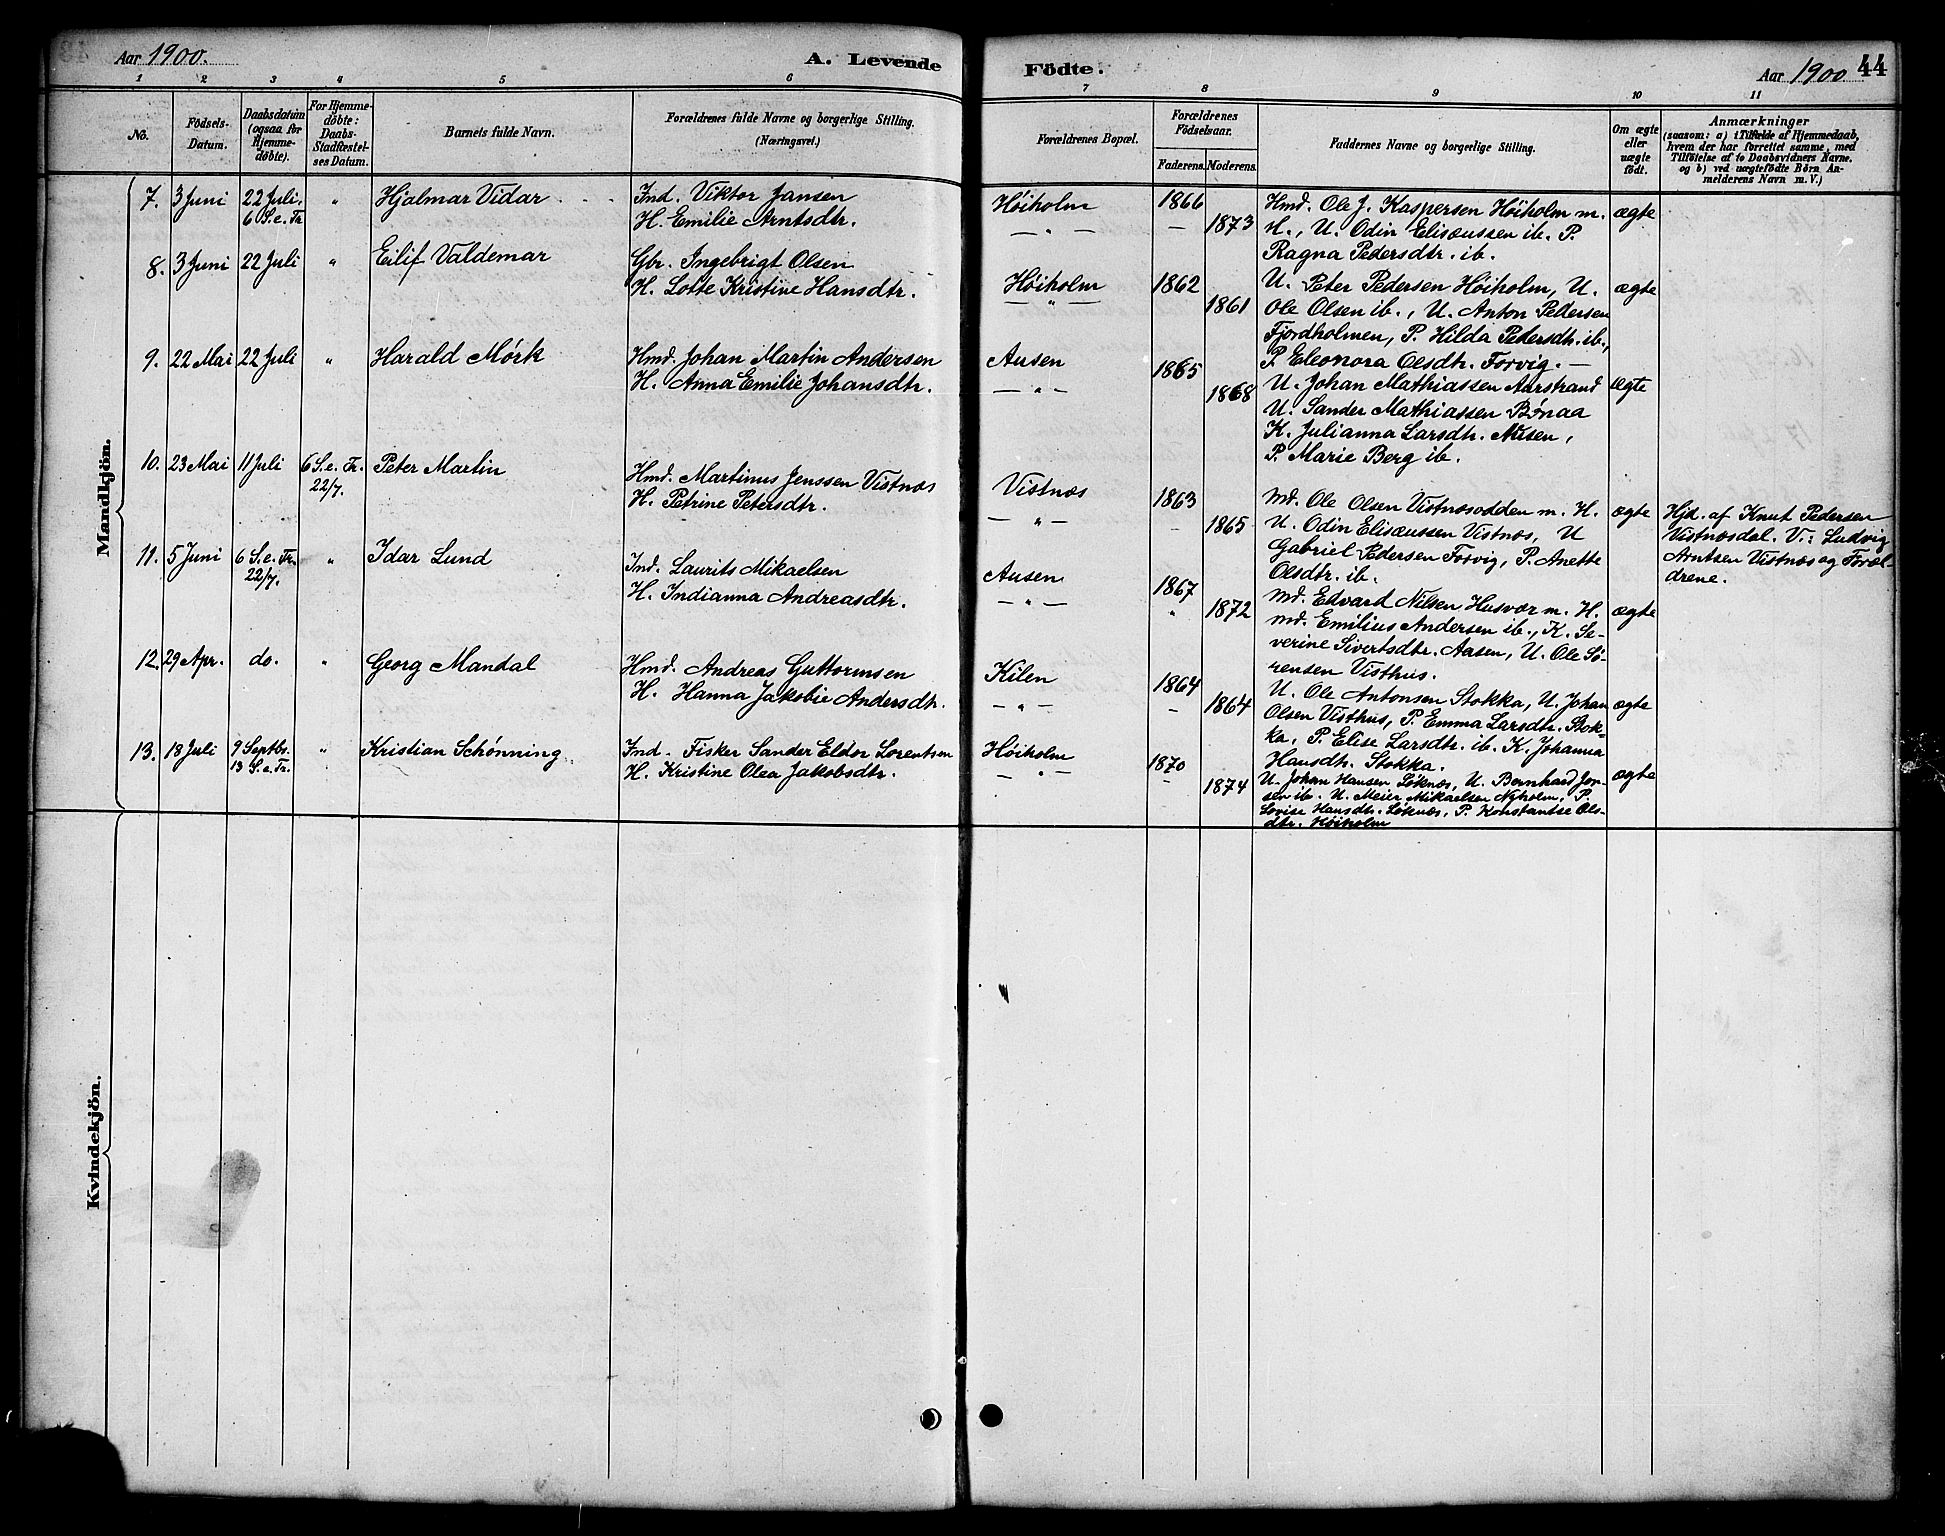 Aar 1900.
A. Levende
Födte.
Aar 1900
44
1 2 3 4 5 6 7 8 9 10 11
No.
Födsels-
Datum.
Daabsdatum
(ogsaa for
Hjemme-
døbte).
For Hjemme-
døbte:
Daabs-
Stadfæstel-
ses Datum.
Barnets fulde Navn.
Forældrenes fulde Navne og borgerlige Stilling.
(Næringsvei.)
Forældrenes Bopæl.
Forældrenes
Födselsaar.
Faderens. Moderens.
Faddernes Navne og borgerlige Stilling.
Om ægte
eller
uægte
født.
Anmærkninger
(saasom: a) i Tilfælde af Hjemmedaab,
hvem der har forrettet samme, med
Tilföielse af to Daabsvidners Navne.
og b) ved uægtefødte Børn An-
melderens Navn m. V.)
Mandkjön.
7. 3 Juni 22 Juli. " Hjalmar Vidar Ind. Viktor Jansen Høiholm 1866
6 S. e. Tr. H. Emilie Arntsdtr. — " — — 1873
Hmd. Ole J. Kaspersen Høiholm m. ægte
H., U. Odin Elisæussen ib. P.
Ragna Pedersdtr. ib.
8. 3 Juni 22 Juli " Eilif Valdemar Gbr. Ingebrigt Olsen
H. Lotte Kristine Hansdtr. Høiholm 1862
— " — 1861
U. Peter Pedersen Høiholm, U. ægte
Ole Olsen ib., U. Anton Pedersen
Fjordholmen, P. Hilda Pedersdtr. ib.,
P. Eleonora Olsdtr. Forvig. —
9. 22 Mai 22 Juli " Harald Mørk Hmd. Johan Martin Andersen Ausen 1865
H. Anna Emilie Johansdtr. — " — 1868
U. Johan Mathiassen Aarstrand ægte
U. Sander Mathiassen Bønaa
K. Julianna Larsdtr. Ausen,
P. Marie Berg ib.
10. 23 Mai 11 Juli 6 S. e. Tr. Peter Martin Hmd. Martinus Jenssen Vistnæs Vistnæs 1863
22/7. H. Petrine Petersdtr. — " — - 1865
Md. Ole Olsen Vistnæsodden m. H. ægte
U. Odin Elisæussen Vistnæs, U
Gabriel Pedersen Forvig, P. Anette
Olsdtr. ib.
Hjd. af Knut Pedersen
Vistnæsdal. V.: Ludvig
Arntsen Vistnæs og Foræl-
drene.
11. 5 Juni 6 S. e. Tr. " Idar Lund Ind. Laurits Mikaelsen Ausen 1867
22/7. H. Indianna Andreasdtr. — " — " 1872
Md. Edvard Nilsen Husvær m. H. ægte
Md. Emilius Andersen ib., K. Se-
verine Sivertsdtr. Aasen, U. Ole Sø-
rensen Visthus.
12. 29 Apr. do. " Georg Mandal Hmd. Andreas Guttormsen Kilen 1864
H. Hanna Jakobie Andersdtr. — " — - 1864
U. Ole Antonsen Stokka, U. Johan ægte
Olsen Visthus, P. Emma Larsdtr. Stok-
ka, P. Elise Larsdtr. ib. K. Johanna
Hansdtr. Stokka.
13. 18 Juli 9 Septbr. " Kristian Schønning Ind. Fisker Sander Eldor Lorentsen Høiholm 1870
13 S. e. Tr. H. Kristine Olea Jakobsdtr. — " — - 1874
U. Johan Hansen Løknæs, U. Bernhard Jon- ægte
sen ib. U. Meier Mikaelsen Nyholm, P.
Lovise Hansdtr. Løknæs, P. Konstantse Ols-
dtr. Høiholm
Kvindekjön.